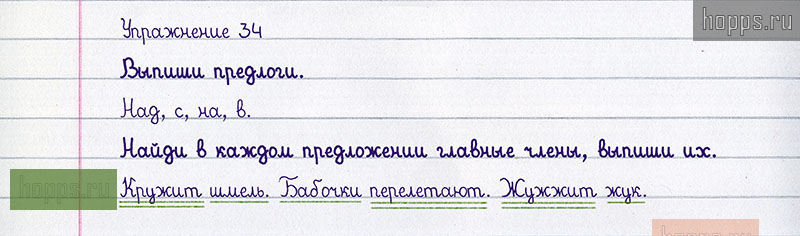 hopps.ru
Упражнение 34
Выпиши предлоги.
Над, с, на, в.
Найди в каждом предложении главные члены, выпиши их.
hopps.ru
Кружит шмель. Бабочки перелетают. Жужжит жук.
hopps.ru